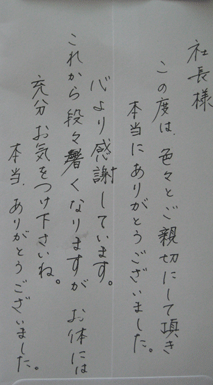 社長様
この度は、色々とご親切にして頂き
本当にありがとうございました。
心より感謝しています。
これから段々暑くなりますが お体には
充分 お気をつけ下さいね。
本当、ありがとうございました。